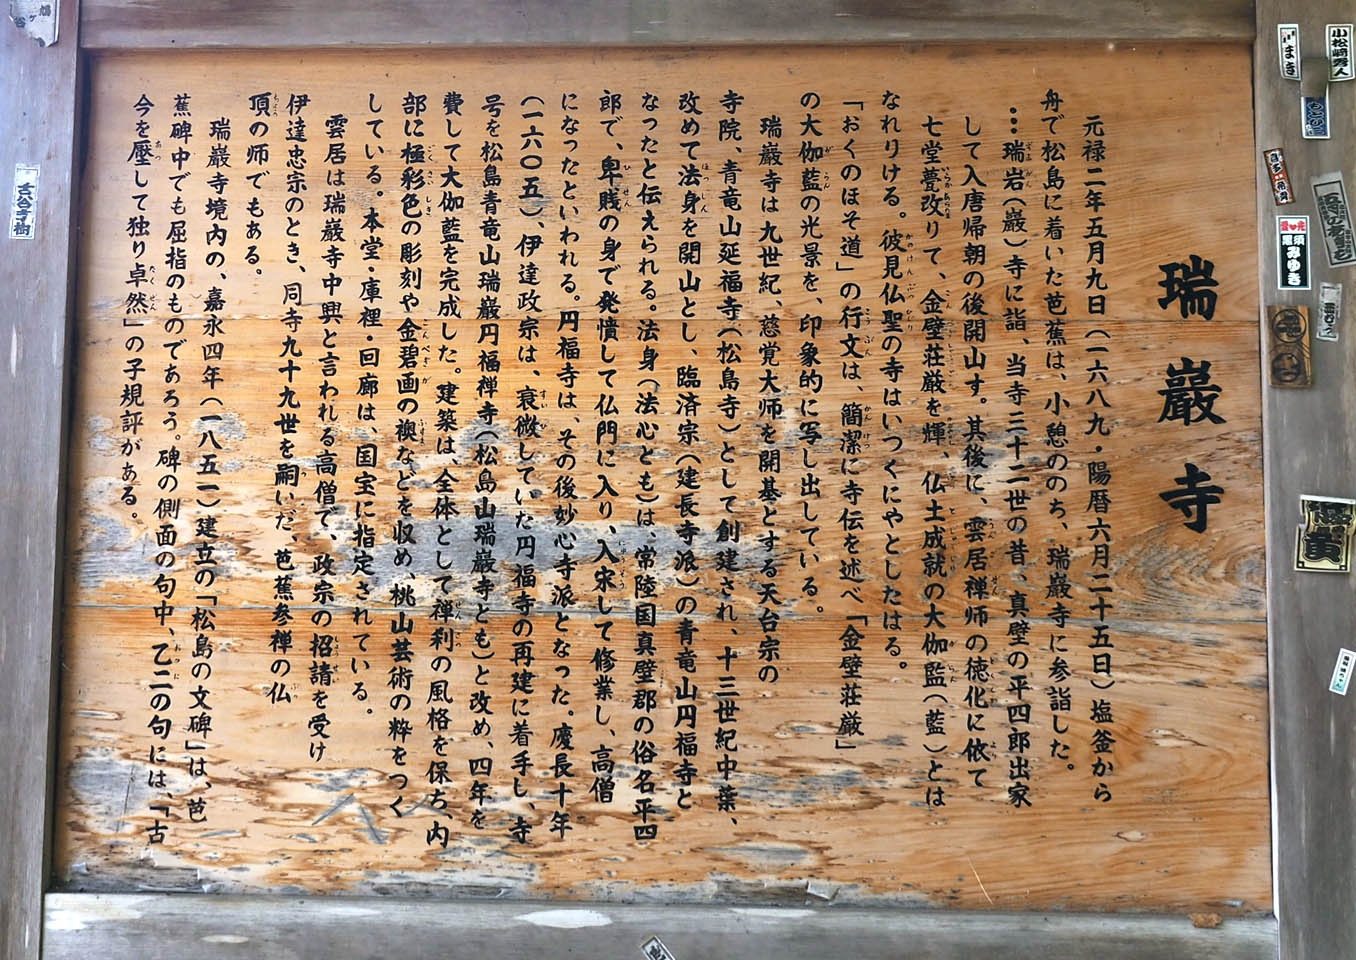 瑞巖寺
元禄二年五月九日(一六八九・陽暦六月二十五日)塩釜から
舟で松島に着いた芭蕉は、小憩ののち、瑞巖寺に参詣した。
…瑞岩(巖)寺に詣、当寺三十二世の昔、真壁の平四郎出家
して入唐帰朝の後開山す。其後に、雲居禅師の徳化に依て
七堂甍改りて、金壁荘厳を輝、仏土成就の大伽監(藍)とは
なれりける。彼見仏聖の寺はいつくにやとしたはる。
「おくのほそ道」の行文は、簡潔に寺伝を述べ「金壁荘厳」
の大伽藍の光景を、印象的に写し出している。
瑞巖寺は九世紀、慈覚大師を開基とする天台宗の
寺院、青竜山延福寺(松島寺)として創建され、十三世紀中葉、
改めて法身を開山とし、臨済宗(建長寺派)の青竜山円福寺と
なったと伝えられる。法身(法心とも)は、常陸国真壁郡の俗名平四
郎で、卑賤の身で発憤して仏門に入り、入宋して修業し、高僧
になったといわれる。円福寺は、その後妙心寺派となった。慶長十年
(一六〇五)、伊達政宗は、衰微していた円福寺の再建に着手し、寺
号を松島青竜山瑞巖円福禅寺(松島山瑞巖寺とも)と改め、四年を
費して大伽藍を完成した。建築は、全体として禅刹の風格を保ち、内
部に極彩色の彫刻や金碧画の襖などを収め、桃山芸術の粋をつく
している。本堂・庫裡・回廊は、国宝に指定されている。
雲居は瑞巖寺中興と言われる高僧で、政宗の招請を受け
伊達忠宗のとき、同寺九十九世を嗣いだ、芭蕉参禅の仏
頂の師でもある。
瑞巖寺境内の、嘉永四年(一八五一)建立の「松島の文碑」は、芭
蕉碑中でも屈指のものであろう。碑の側面の句中、乙二の句には、「古
今を壓して独り卓然」の子規評がある。
小松崎秀人
みゆき